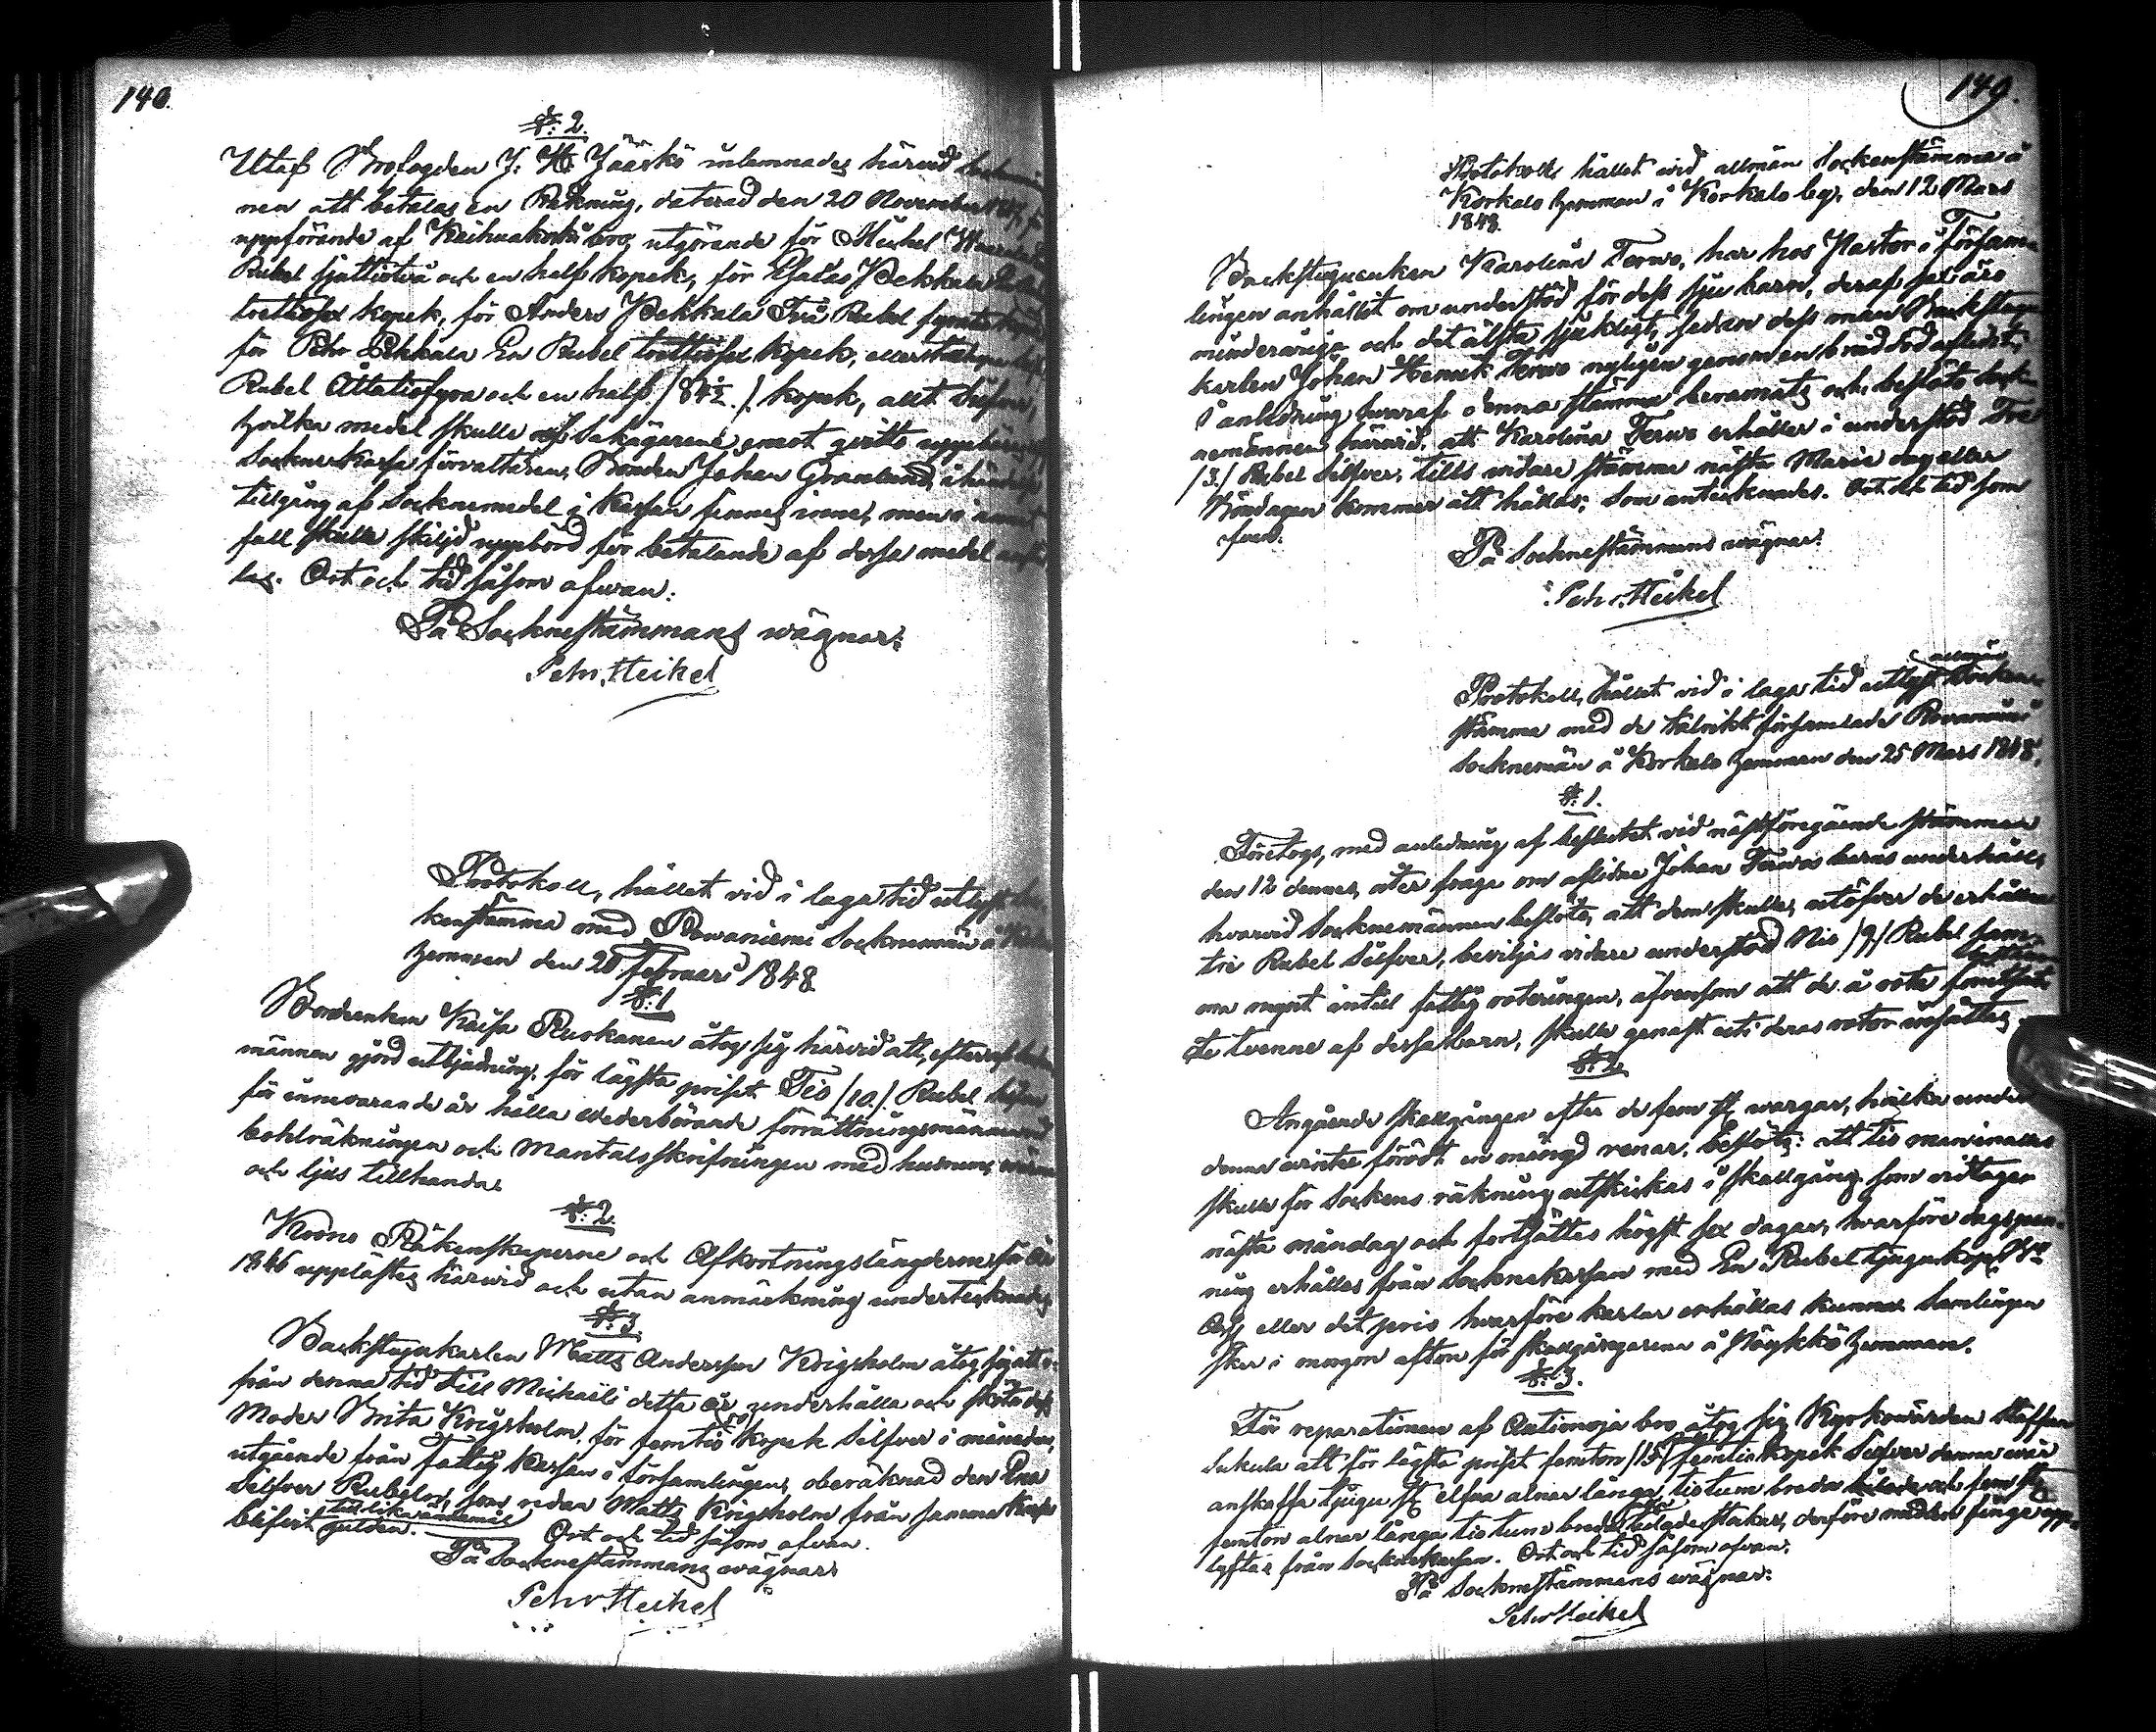 148.
§: 2.
Utaf Brofogden J. H. Jääskö inlemnades härvid
nen att betalas en Räkning, daterad den 20 November
uppförande af Raihuakoski bro, utgörande för Michel
Rubel sjuttiotvå och en half kopek, för Esaias Pekkala
trettiosex kopek, för Anders Pekkala Två Rubel femtio
för Pehr Pekkala En Rubel trettiosex kopek, eller
Rubel Åttatiofyra och en half /84½./ kopek, allt Silfver,
hvilka medel skulle af Sakägarene emot qvitto uppbäras
Sockne Kassa förvaltaren, Bonden Johan Granlund, i händelse
tillgång af Socknemedel i Kassan finnes inne, men i annat
fall skulle skiljd uppbörd för betalande af dessa medel
las. Ort och tid såsom ofvan:
På Socknestämmans wägnar:
Pehr Heikel
Protokoll, hållet vid i laga tid utlyst
kenstämma med Rowaniemi Socknemän å
hemman den 20 Februari 1848
§: 1
Bondenkan Kaisa Ruokanen åtog sig härvid att, efter af
männen gjord utbjudning, för lägsta priset Tio /10./ Rubel Silfver
för innevarande år hålla vederbörande förrättningsmän
bohlräkningen och Mantalsskrifningen med husrum, värme
och ljus tillhanda.
§: 2.
Krono Räkenskaperne och Afkortningslängderne för år
1846 upplästes härvid och utan anmärkning undertecknades
§: 3.
Backstugukarlen Matts Andersson Krigsholm åtog sig att
från denna tid till Michaeli detta år underhålla och sköta dess
Moder Brita Krigsholm, för femtio (50) kopek Silfver i månaden,
utgående från Fattig Kassan i församlingen, oberäknad den Ena
Silfver Rubeln, som redan Matts Krigsholm från samma Kassa
blifvit till lika ändamål gulden. Ort och tid såsom ofvan.
På Socknestämmans wägnar:
Pehr Heikel
149.
Protokoll hållet vid allmän Sockenstämma å
Korkalo hemman i Korkalo by, den 12 Mars
1848.
Backstuguenkan Karolina Terwo, har hos Pastor i Försam-
lingen anhållit om understöd för dess sju barn, deraf sex äro
minderåriga och det älsta sjukligt, sedan dess man Backstugu
karlen Johan Henrik Terwo nyligen genom en bråd död aflidit,
i anledning hvaraf denna stämma beramats och beslöto Sock-
nemännen härvid, att Karolina Terwo erhåller i understöd Tre
/3./ Rubel Silfver, tills vidare stämma nästa Marie dag eller
Böndagen kommer att hållas; Som antecknades. Ort och tid som
ofvan.
På Socknestämmans wägnar:
Pehr Heikel
Protokoll, hållet vid i laga tid utlyst allmän Socken-
stämma med de talrikt församlade Rovaniemi
Socknemän å Korkalo hemman den 25 Mars 1848.
§: 1.
Företogs, med anledning af beslutet vid nästföregående stämman
den 12 dennes, åter fråga om aflidne Johan Terwos barns underhåll,
hvarvid Socknemännen beslöto, att dem skulle, utöfver de erhållna
tre Rubel Silfver, beviljas vidare understöd Nio /9/ Rubel sam-
ma mynt intill fattig roteringen, äfvensom att de å rote
te tvenne af dessa barn, skulle genast uti deras rotor insättas.
§: 2.
Angående skallgången efter de fem st. wargar, hvilka under
denna winter förödt en mängd renar, beslöts: att tio man
skulle för Sockens räkning utskickas i skallgång, som vidtager
nästa måndag och fortsättes högst sex dagar, hvarföre dagspen-
ning erhålles från Socknekassan med En Rubel tjugu kop.
eller det pris hvarföre karlar erhållas kunna. Samlingen
sker i morgon afton för skallgångarena å Näykkö hemman.
§: 3.
För reparationen af Outionoja bro åtog sig Kyrkovärden Staffan
Sukula att för lägsta priset femton /15/ femtio kopek Silfver denna vår
anskaffa tjugu st. elfva alnar långa, tio tum breda och fem st.
femton alnar långa tio tum breda stockar, derföre medlen finge upp-
lyftas från Socknekassan. Ort och tid såsom ofvan.
På Socknestämmans wägnar:
Pehr Heikel